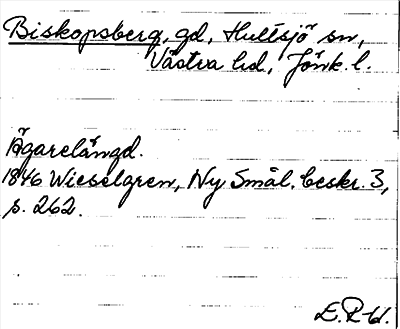 Biskopsberg, gd, Hultsjö sn,
Västra hd, Jönk. l.
Ägarelängd.
1846 Wieselgren, Ny Smål. beskr. 3,
s. 262.